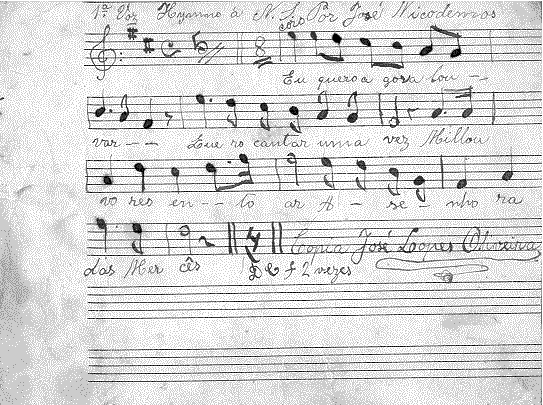 1ª Voz Hymno á N. S. Por José Nicodemos
côro
Eu quero a gora lou --
var -- Que ro cantar uma vez Millou
vo res en -- to ar A - se - nho ra
das Mer cês D C f 2 vezes
Copia José Lopes Oliveira